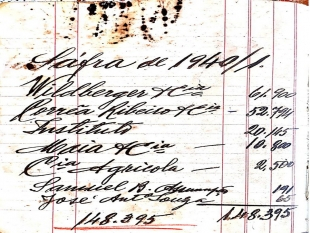 Sáfra de 1940/1.
Wildberger & Cia 61.900
Corrêa Ribeiro & Cia - 52.794
Instituto 20.145
Media & Cia - 10.800
Cia Agricola - 2,500
Samuel B. 191
José Ant. Souza 65
148.395 148.395